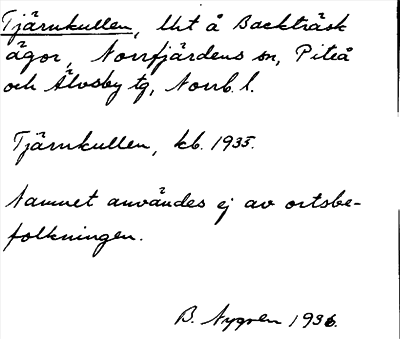 Tjärnkullen, lht å Backträsk
ägor, Norrfjärdens sn, Piteå
och Älvsby tg, Norrb. l.
Tjärnkullen, kb. 1935.
Namnet användes ej av ortsbe-
folkningen.
B. Nygren 1936.